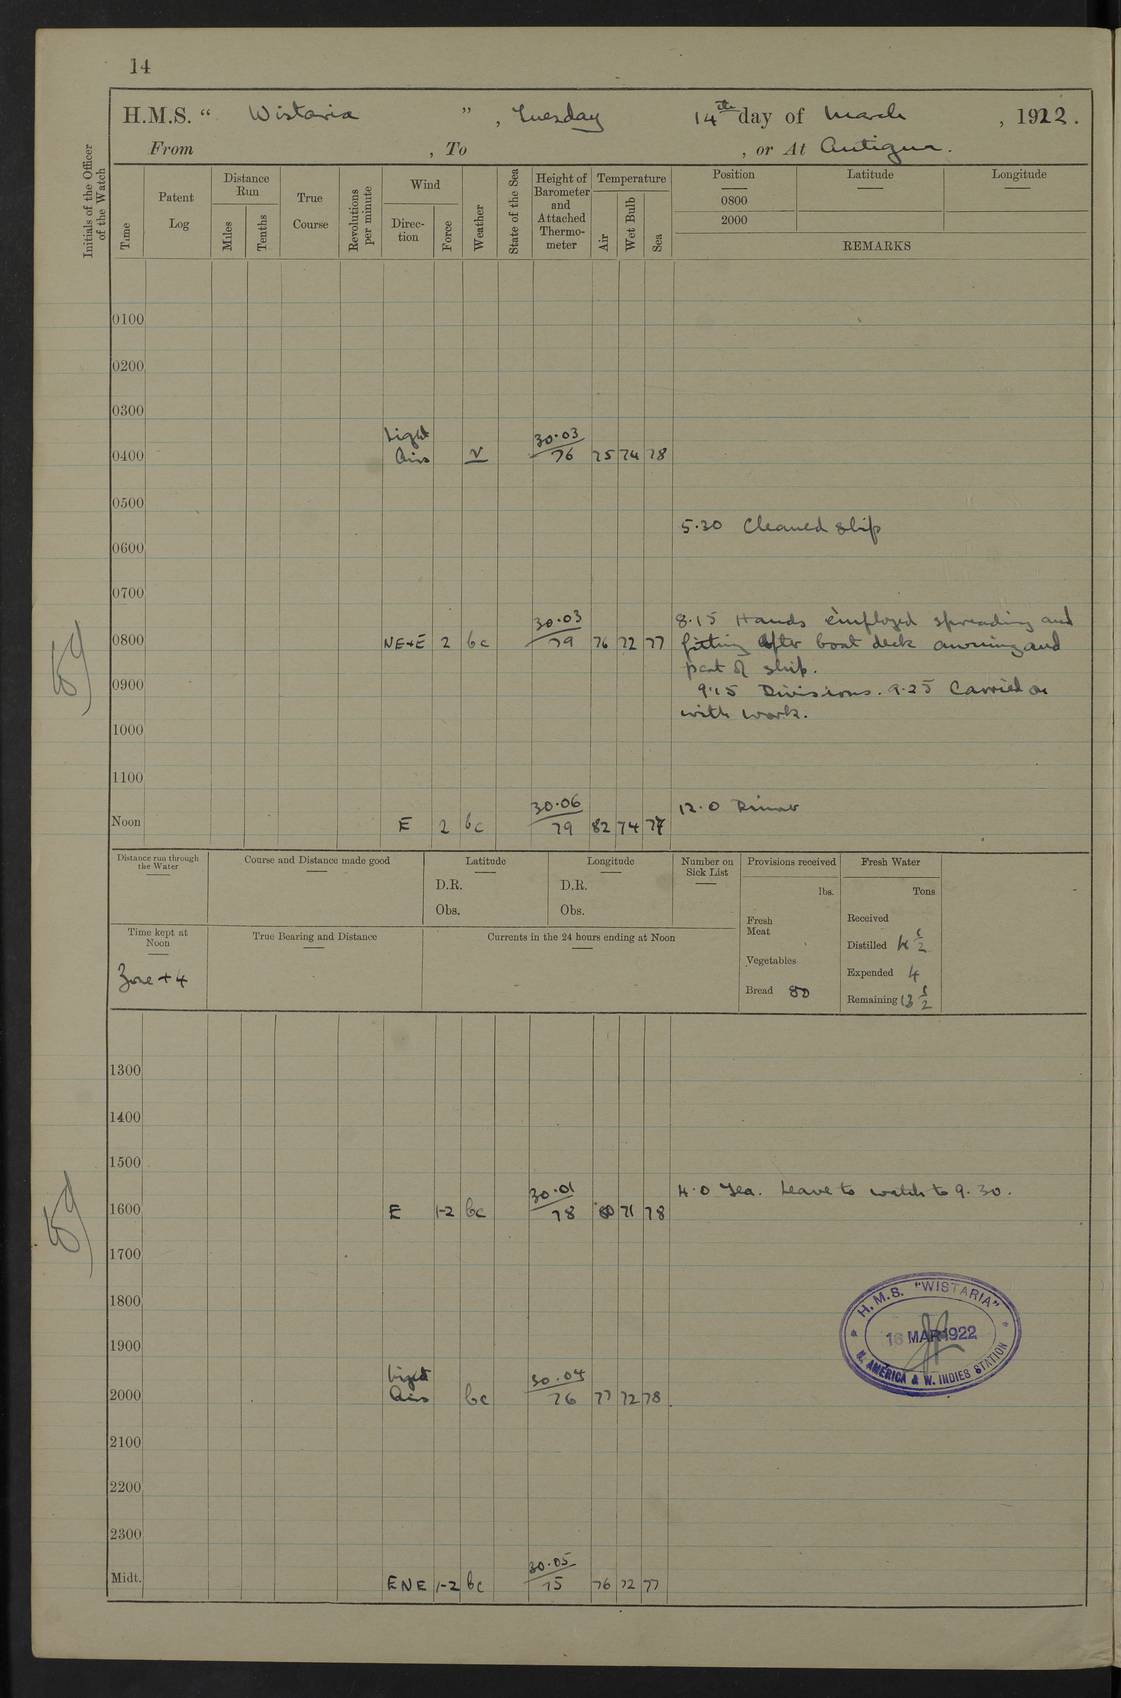 14
H.M.S. “ Wistaria ” , Tuesday 14th day of March , 1922.
From , To , or At Antigua.
Initials of the Officer of the Watch
Time
Patent Log
Distance Run
Miles
Tenths
True Course
Revolutions per minute
Wind
Direc-tion
Force
Weather
State of the Sea
Height of Barometer and Attached Thermo-meter
Temperature
Air
Wet Bulb
Sea
Position Latitude Longitude
0800
2000
REMARKS
0100
0200
0300
0400 Light Airs v 30.03 76 75 74 78
0500
5.30 Cleaned ship
0600
0700
8.15 Hands employed spreading and
0800 NE+E 2 bc 30.03 79 76 72 77 fitting after boat deck awning and
part of ship.
0900 9.15 Divisions. 9.25 Carried on
with work.
1000
1100
12.0 Dinner
Noon E 2 bc 30.06 79 82 74 77
Distance run through the Water
Course and Distance made good
Latitude
D.R.
Obs.
Longitude
D.R.
Obs.
Number on Sick List
Provisions received
lbs.
Fresh Meat
Vegetables
Bread 80
Fresh Water
Tons
Received
Distilled
Expended 4
Remaining
Time kept at Noon
Zone + 4
True Bearing and Distance
Currents in the 24 hours ending at Noon
1300
1400
1500
4.0 Tea. Leave to watch to 9.30.
1600 E 1-2 bc 30.01 78 80 71 78
1700
1800
1900
2000 Light Airs bc 30.04 76 77 72 78
2100
2200
2300
Midt. ENE 1-2 bc 30.05 75 76 72 77
H.M.S. "WISTARIA"
16 MAR 1922
N. AMERICA & W. INDIES STATION